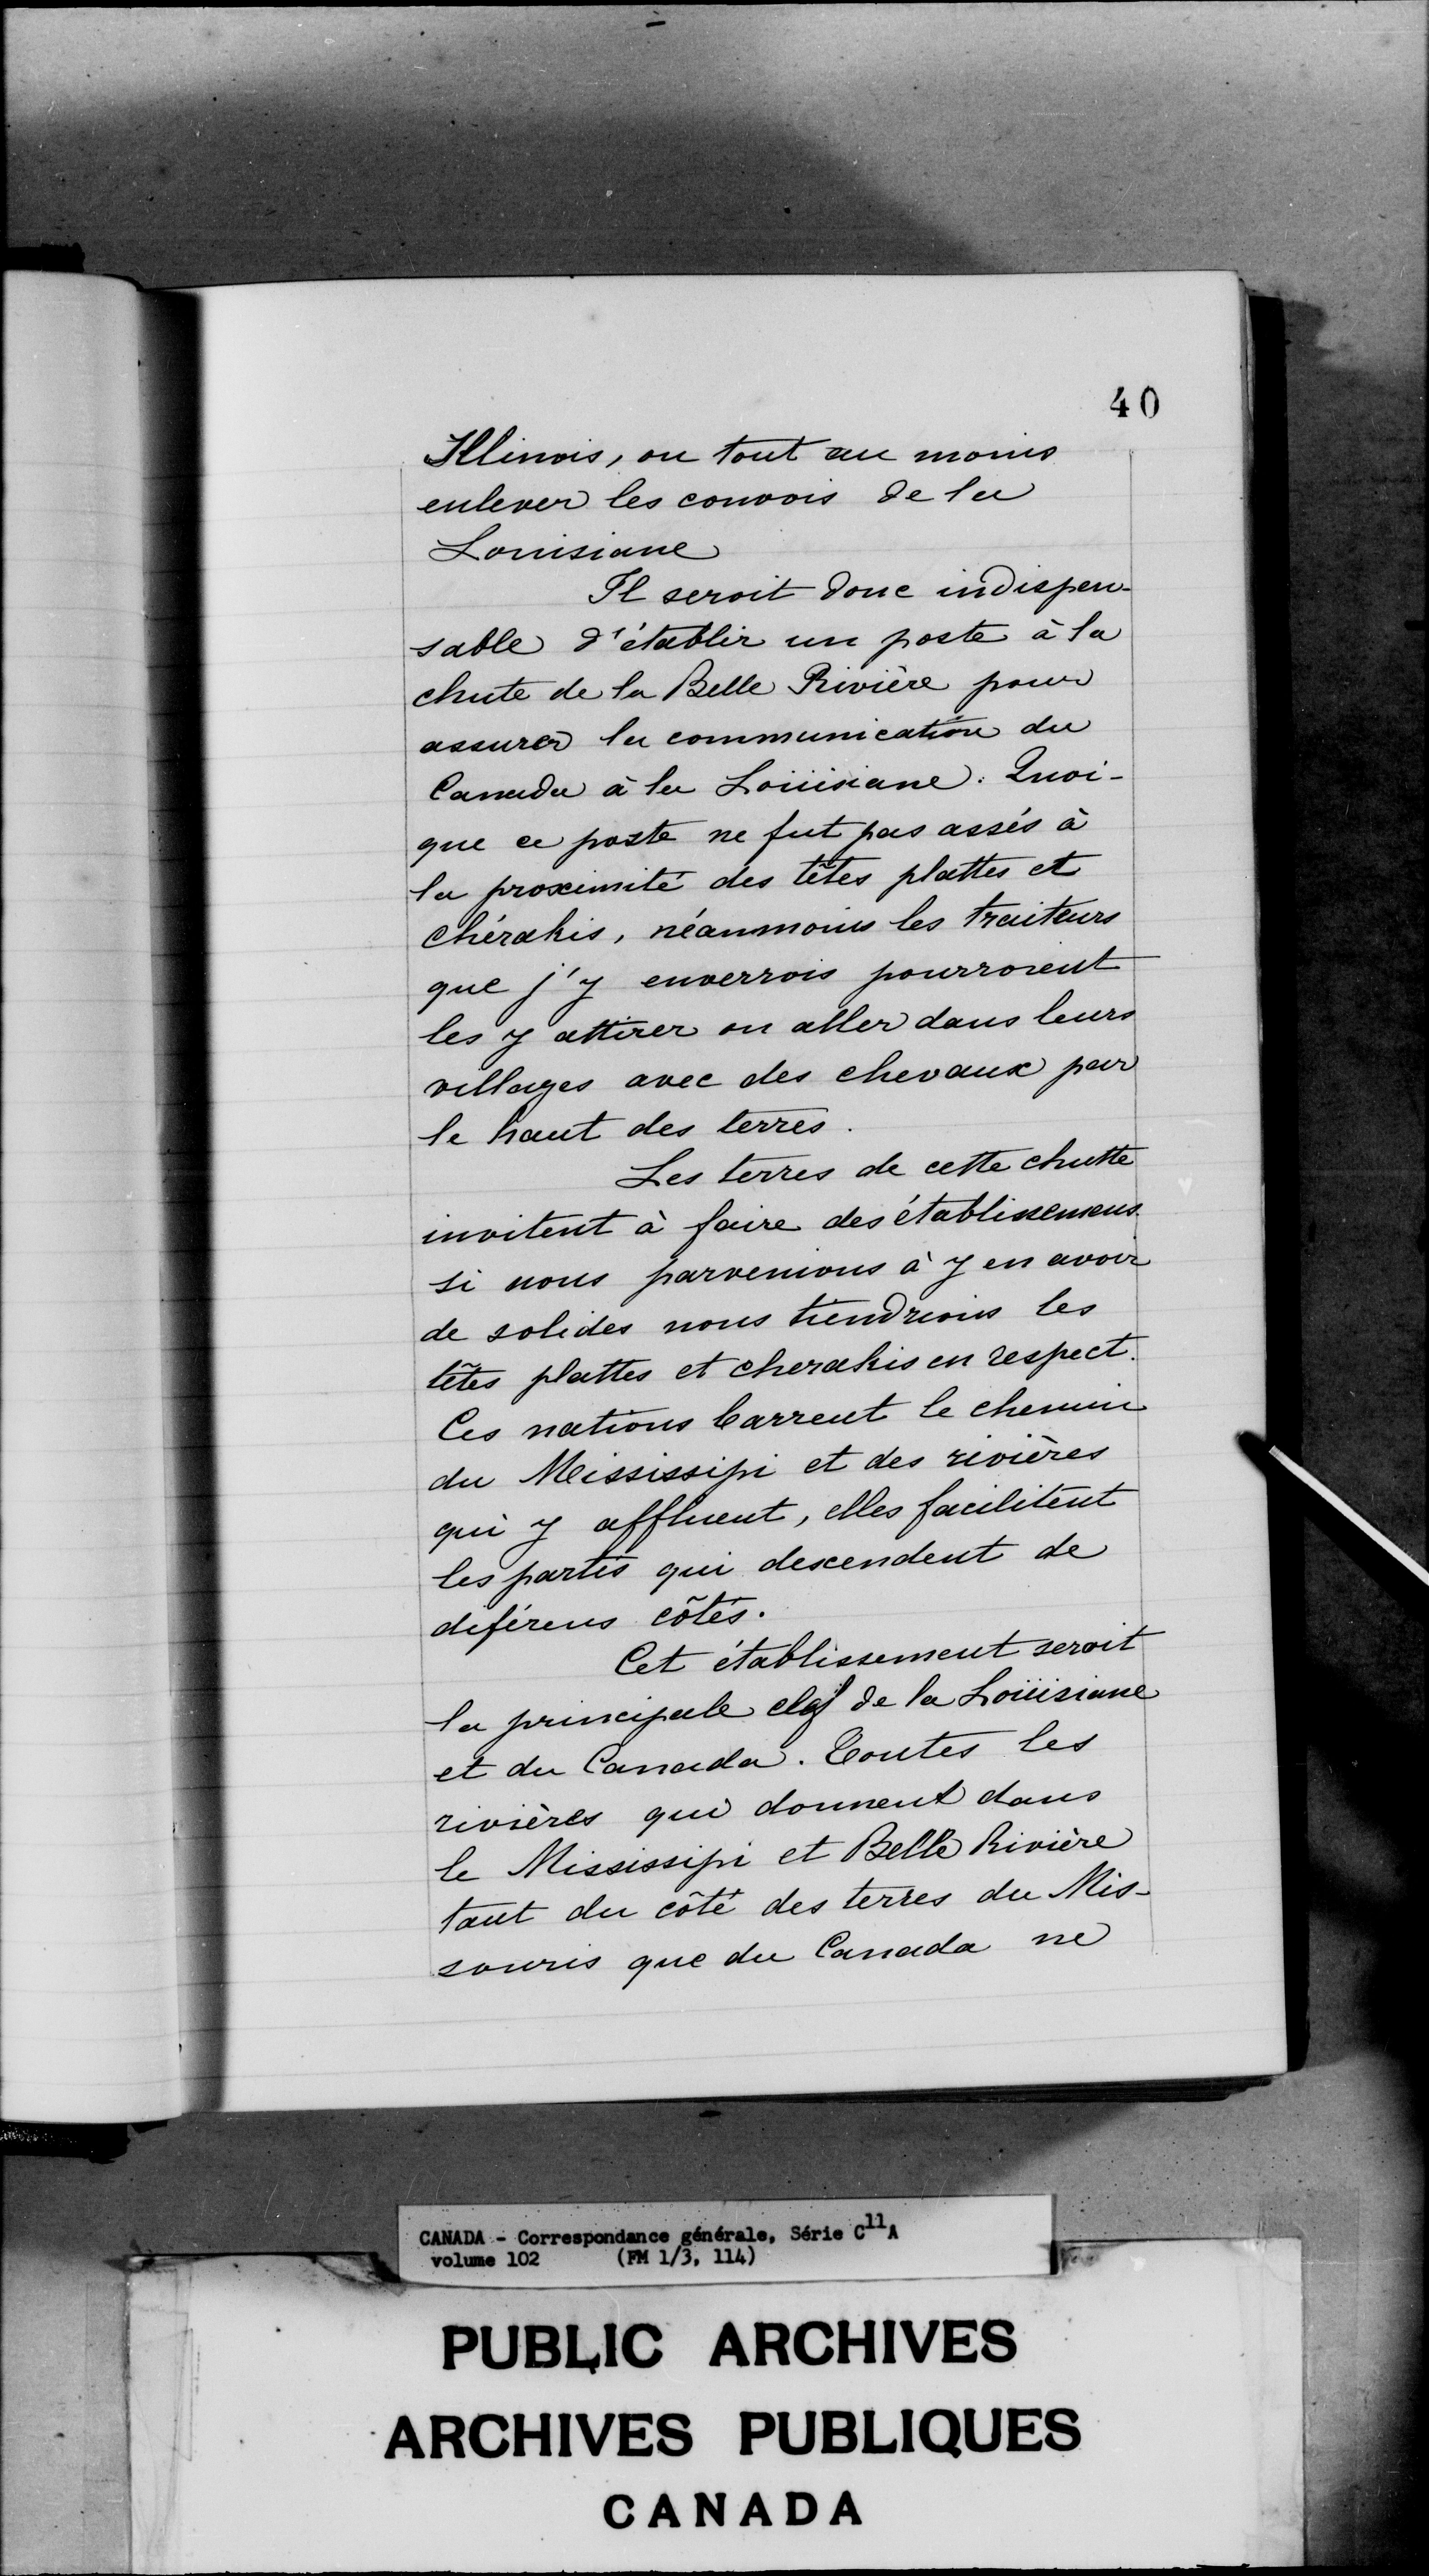 40
Illinois, ou tout au moins
enlever les convois de la
Louisiane
Il seroit donc indispen-
sable d'établir un poste à la
chute de la Belle Rivière pour
assurer la communication du
Canada à la Loüisiane. Quoi-
que ce poste ne fut pas assés à
la proximité des têtes plattes et
Chérakis, néanmoins les traiteurs
que j'y enverrois pourroient
les y attirer ou aller dans leurs
villages avec des chevaux par
le haut des terres.
Les terres de cette chutte
invitent à faire des établissemens
si nous parvenions à y en avoir
de solides nous tiendrions les
têtes plattes et cherakis en respect.
Ces nations barrent le chemin
du Mississipi et des rivières
qui y affluent, elles facilitent
les partis qui descendent de
diférens côtés.
Cet établissement seroit
la principale clef de la Loüisiane
et du Canada. Toutes les
rivières qui donnent dans
le Mississipi et Belle Rivière
tant du côté des terres du Mis-
souris que du Canada ne
CANADA - Correspondance générale, Série C11A
volume 102 (FM 1/3, 114)
PUBLIC ARCHIVES
ARCHIVES PUBLIQUES
CANADA